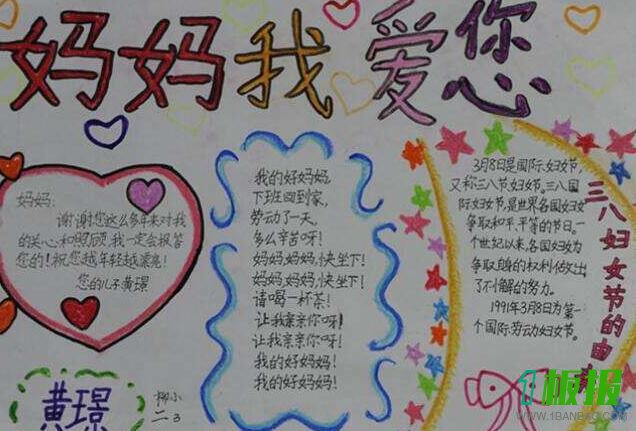 妈妈我爱您
妈妈:
谢谢您这么多年来对我
的关心和照顾,我一定会报答
您的!祝您越年轻越漂亮!
您的儿子黄璟
我的好妈妈,
下班回到家,
劳动了一天,
多么辛苦呀!
妈妈,妈妈,快坐下!
妈妈,妈妈,快坐下!
请喝一杯茶!
让我亲亲你呀!
让我亲亲你呀!
我的好妈妈!
我的好妈妈!
3月8日是国际妇女节,
又称三八节,妇女节。三八国
际妇女节,是世界各国妇女
争取和平,平等的节日,一
个世纪以来,各国妇女为
争取自身的权利做出
了不懈的努力。
1991年3月8日为第一
个国际劳动妇女节。
三八妇女节的由
黄璟
柳小
二3
1板报
WWW.1BANBAO.COM